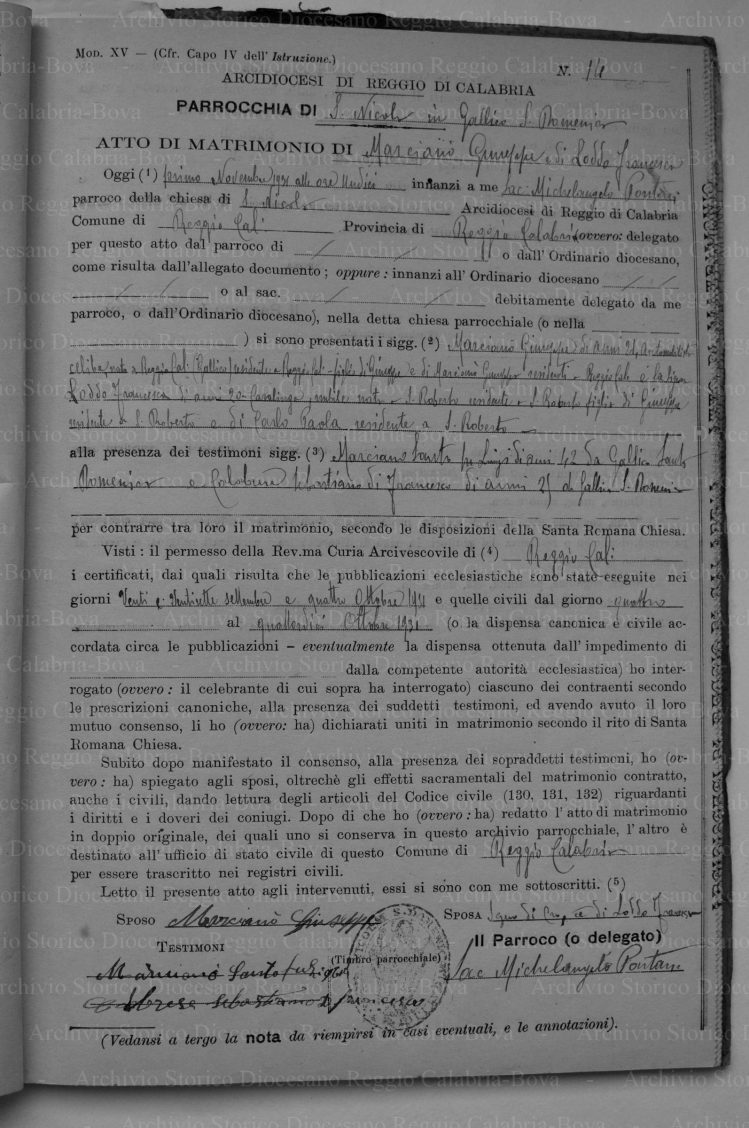 MOD. XV — (Cfr. Capo IV dell' Istruzione.)
N. 14
ARCIDIOCESI DI REGGIO DI CALABRIA
PARROCCHIA DI S. Nicola in Gallico S. Domenica
ATTO DI MATRIMONIO DI Marcianò Giuseppe e di Loddo Francesca
Oggi (1) primo Novembre 1931 alle ore undici innanzi a me Sac. Michelangelo Pontari
parroco della chiesa di S. Nicola Arcidiocesi di Reggio di Calabria
Comune di Reggio Cal. Provincia di Reggio Calabria (ovvero: delegato
per questo atto dal parroco di / / o dall' Ordinario diocesano,
come risulta dall'allegato documento ; oppure : innanzi all' Ordinario diocesano / /
/ / o al sac. / / debitamente delegato da me
parroco, o dall'Ordinario diocesano), nella detta chiesa parrocchiale (o nella
) si sono presentati i sigg. (2) Marcianò Giuseppe di anni
celibe nato a Reggio Cal. Gallico residente a Reggio Cal. figlio di Giuseppe e di Marcianò residenti Reggio Cal. e la
Loddo Francesca di anni 20 casalinga nubile nata a S. Roberto residente a S. Roberto figlia di Giuseppe
residente a S. Roberto e di Paola residente a S. Roberto
alla presenza dei testimoni sigg. (3) Marciano Santo fu Luigi di anni 42 da Gallico Santa
Domenica e Calabrese Sebastiano di Francesco di anni da Gallico S. Domenica
per contrarre tra loro il matrimonio, secondo le disposizioni della Santa Romana Chiesa.
Visti : il permesso della Rev.ma Curia Arcivescovile di (4) Reggio Cal.
i certificati, dai quali risulta che le pubblicazioni ecclesiastiche sono state eseguite nei
giorni Venti e Ventisette settembre e quattro Ottobre 1931 e quelle civili dal giorno quattro
al quattordici Ottobre 1931 (o la dispensa canonica e civile ac-
cordata circa le pubblicazioni – eventualmente la dispensa ottenuta dall' impedimento di
dalla competente autorità ecclesiastica) ho inter-
rogato (ovvero : il celebrante di cui sopra ha interrogato) ciascuno dei contraenti secondo
le prescrizioni canoniche, alla presenza dei suddetti testimoni, ed avendo avuto il loro
mutuo consenso, li ho (ovvero: ha) dichiarati uniti in matrimonio secondo il rito di Santa
Romana Chiesa.
Subito dopo manifestato il consenso, alla presenza dei sopraddetti testimoni, ho (ov-
vero : ha) spiegato agli sposi, oltrechè gli effetti sacramentali del matrimonio contratto,
anche i civili, dando lettura degli articoli del Codice civile (130, 131, 132) riguardanti
i diritti e i doveri dei coniugi. Dopo di che ho (ovvero : ha) redatto l' atto di matrimonio
in doppio originale, dei quali uno si conserva in questo archivio parrocchiale, l' altro è
destinato all' ufficio di stato civile di questo Comune di Reggio Calabria
per essere trascritto nei registri civili.
Letto il presente atto agli intervenuti, essi si sono con me sottoscritti. (5)
SPOSO Marcianò Giuseppe SPOSA Segno di Croce di Loddo Francesca
TESTIMONI (Timbro parrocchiale) Il Parroco (o delegato)
Marcianò Santo fu Luigi Sac. Michelangelo Pontari
Calabrese Sebastiano di Francesco
(Vedansi a tergo la nota da riempirsi in casi eventuali, e le annotazioni).
Archivio Storico Diocesano Reggio Calabria-Bova